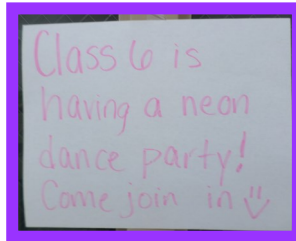 Class 6 is
having a neon
dance party!
Come join in